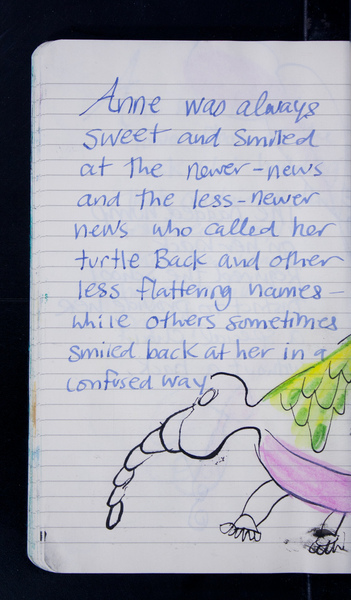 Anne was always
sweet and smiled
at the newer-news
and the less-newer
news who called her
turtle Back and other
less flattering names-
while others sometimes
smiled back at her in a
confused way
11